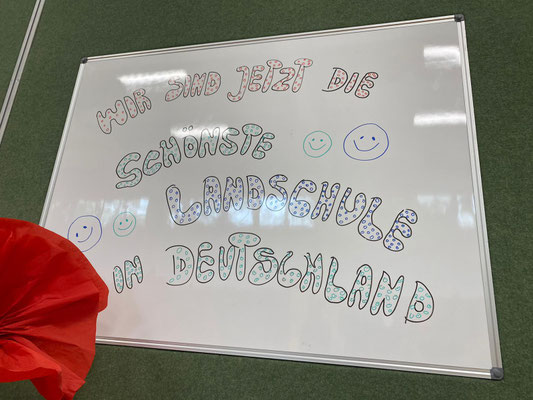 WIR SIND JETZT DIE
SCHÖNSTE
LANDSCHULE
IN DEUTSCHLAND